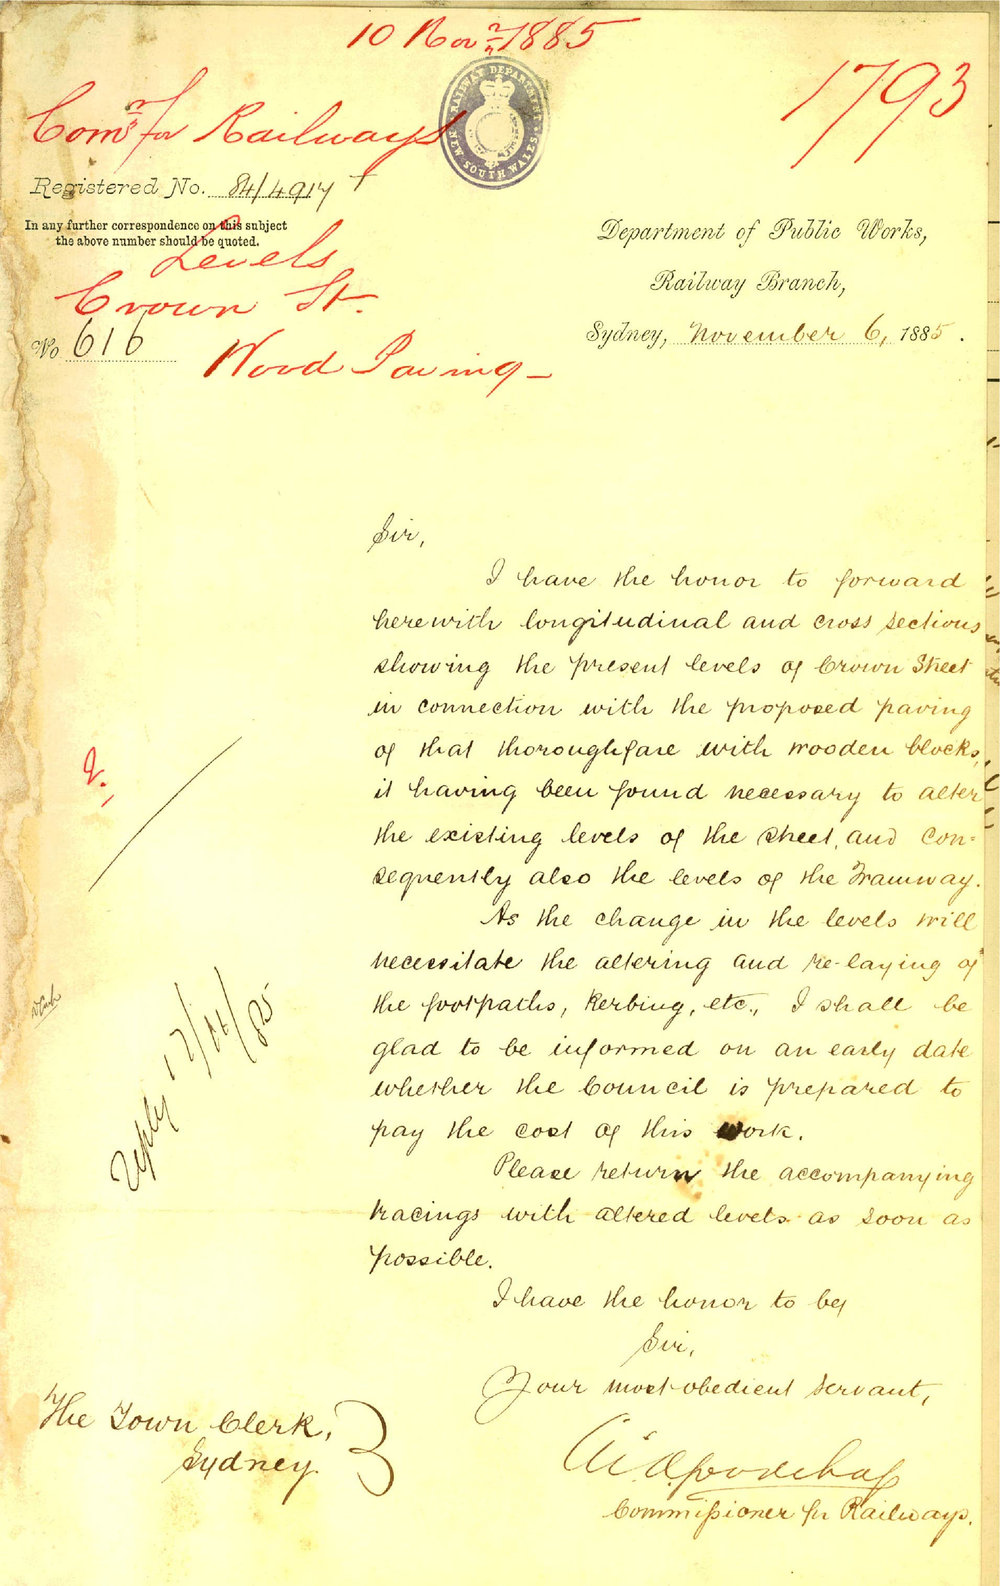 10 Nov.r 1885
1793
RAILWAY DEPARTMENT
NEW SOUTH WALES
Com.r for Railways
Registered No. 84/4917
In any further correspondence on this subject
the above number should be quoted.
Levels
Crown St.
No 616
Wood Paving –
Department of Public Works,
Railway Branch,
Sydney, November 6, 1885.
Sir,
I have the honor to forward
herewith longitudinal and cross sections
showing the present levels of Crown Street
in connection with the proposed paving
of that thoroughfare with wooden blocks,
it having been found necessary to alter
the existing levels of the street, and con-
sequently also the levels of the Tramway.
As the change in the levels will
necessitate the altering and re-laying of
the footpaths, kerbing, etc., I shall be
glad to be informed on an early date
whether the Council is prepared to
pay the cost of this work.
Please return the accompanying
tracings with altered levels as soon as
possible.
I have the honor to be,
Sir,
Your most obedient servant,
Commissioner for Railways.
The Town Clerk,
Sydney.
Reply 17/11/85